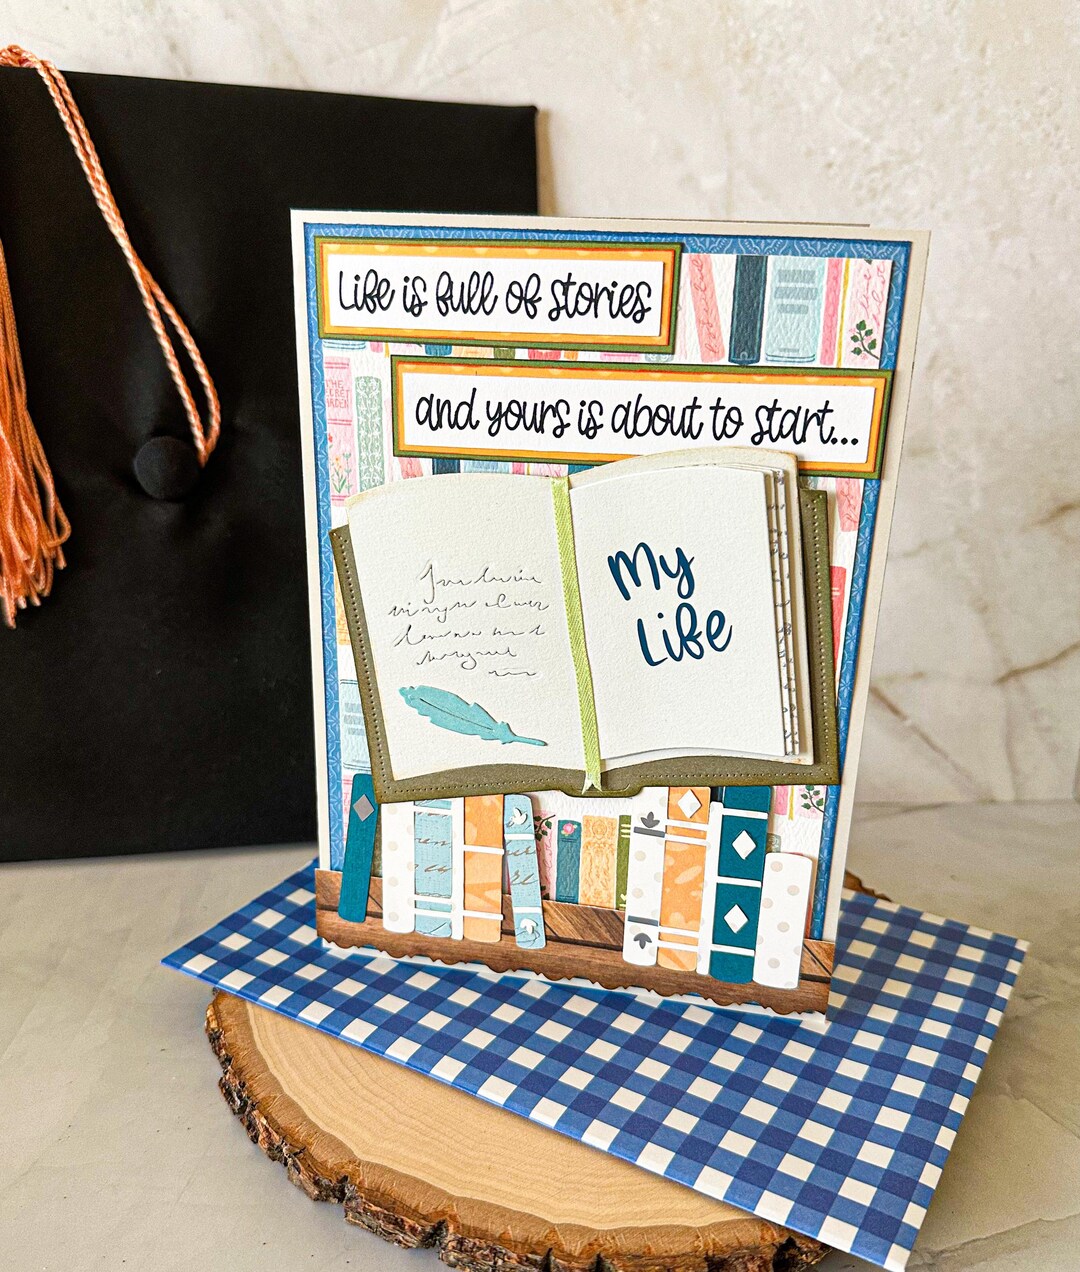 Life is full of stories
and yours is about to start...
THE
SECRET
GARDEN
My
Life